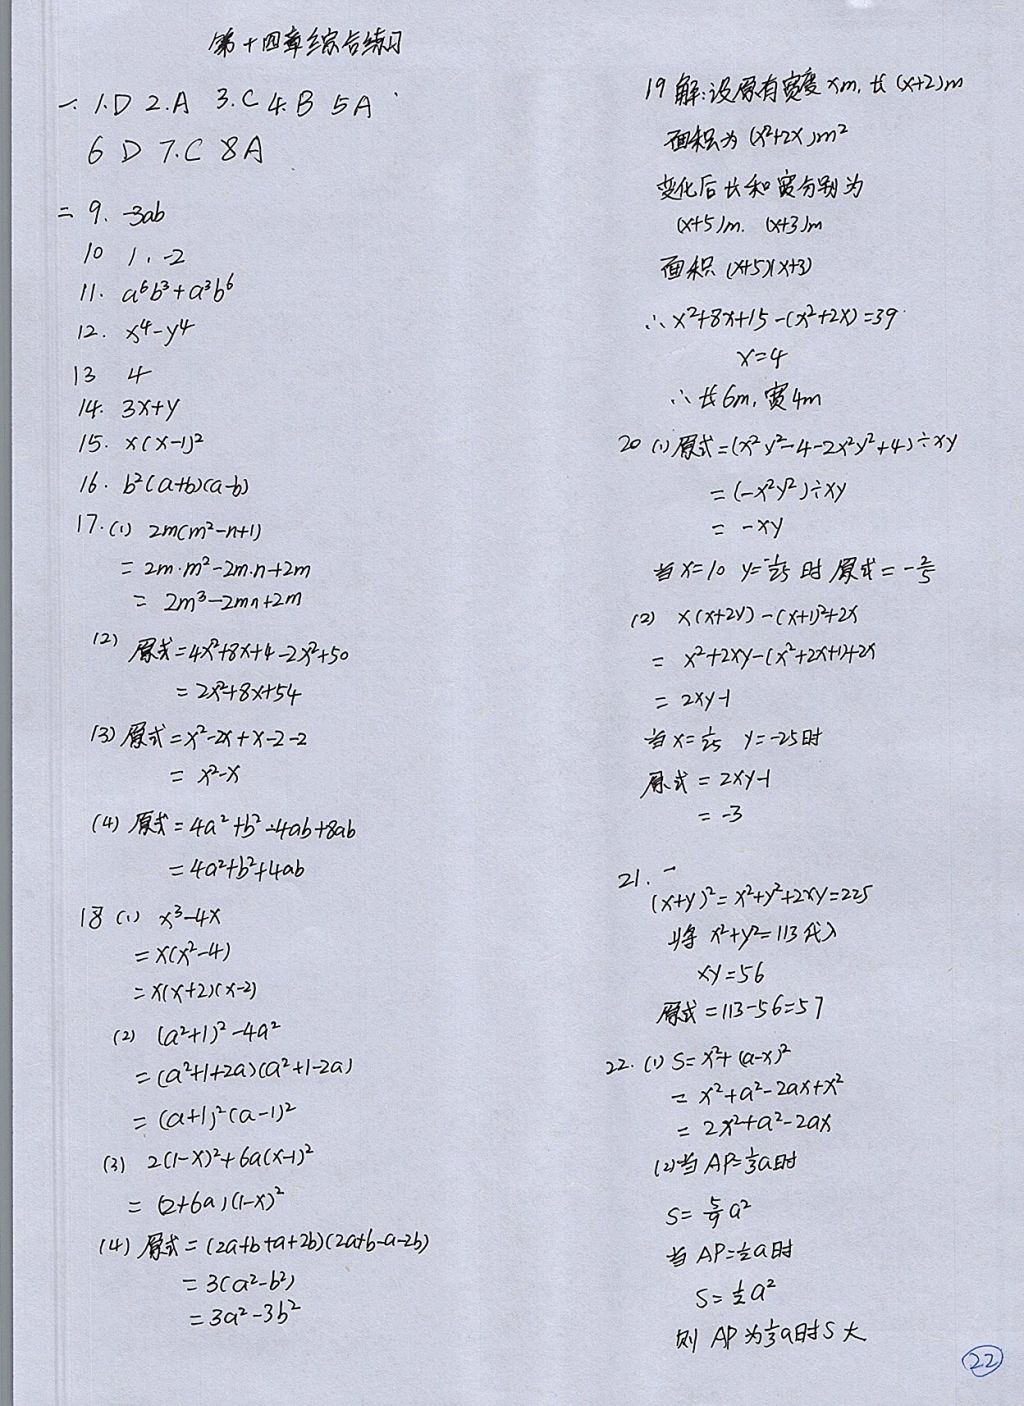 第十四章综合练习
一. 1.D 2.A 3.C 4.B 5A
6 D 7.C 8A
二 9. -3ab
10 1. -2
11. a⁶b³+a³b⁶
12. x⁴-y⁴
13 4
14. 3x+y
15. x(x-1)²
16. b²(a+b)(a-b)
17.(1) 2m(m²-n+1)
=2m·m²-2m·n+2m
= 2m³-2mn+2m
(2) 原式=4x²+8x+4-2x²+50
=2x²+8x+54
(3) 原式=x²-2x+x-2-2
= x²-x
(4) 原式=4a²+b²-4ab+8ab
=4a²+b²+4ab
18 (1) x³-4x
=x(x²-4)
=x(x+2)(x-2)
(2) (a²+1)²-4a²
=(a²+1+2a)(a²+1-2a)
=(a+1)²(a-1)²
(3) 2(1-x)²+6a(x-1)²
= (2+6a)(1-x)²
(4) 原式=(2a+b+a+2b)(2a+b-a-2b)
=3(a²-b²)
=3a²-3b²
19 解:设原有宽度xm,长(x+2)m
面积为(x²+2x)m²
变化后长和宽分别为
(x+5)m. (x+3)m
面积 (x+5)(x+3)
∴x²+8x+15-(x²+2x)=39
x=4
∴长6m,宽4m
20 (1)原式=(x²y²-4-2x²y²+4)÷xy
=(-x²y²)÷xy
= -xy
当x=10 y=-1/25 时 原式=-2/5
(2) x(x+2y)-(x+1)²+2x
= x²+2xy-(x²+2x+1)+2x
= 2xy-1
当x=1/25 y=-25时
原式=2xy-1
= -3
21.
(x+y)²=x²+y²+2xy=225
将x²+y²=113代入
xy=56
原式=113-56=57
22. (1) S=x²+(a-x)²
= x²+a²-2ax+x²
= 2x²+a²-2ax
(2)当AP=1/3a时
S=5/9a²
当AP=1/2a时
S=1/2a²
则AP为1/3a时S大
22